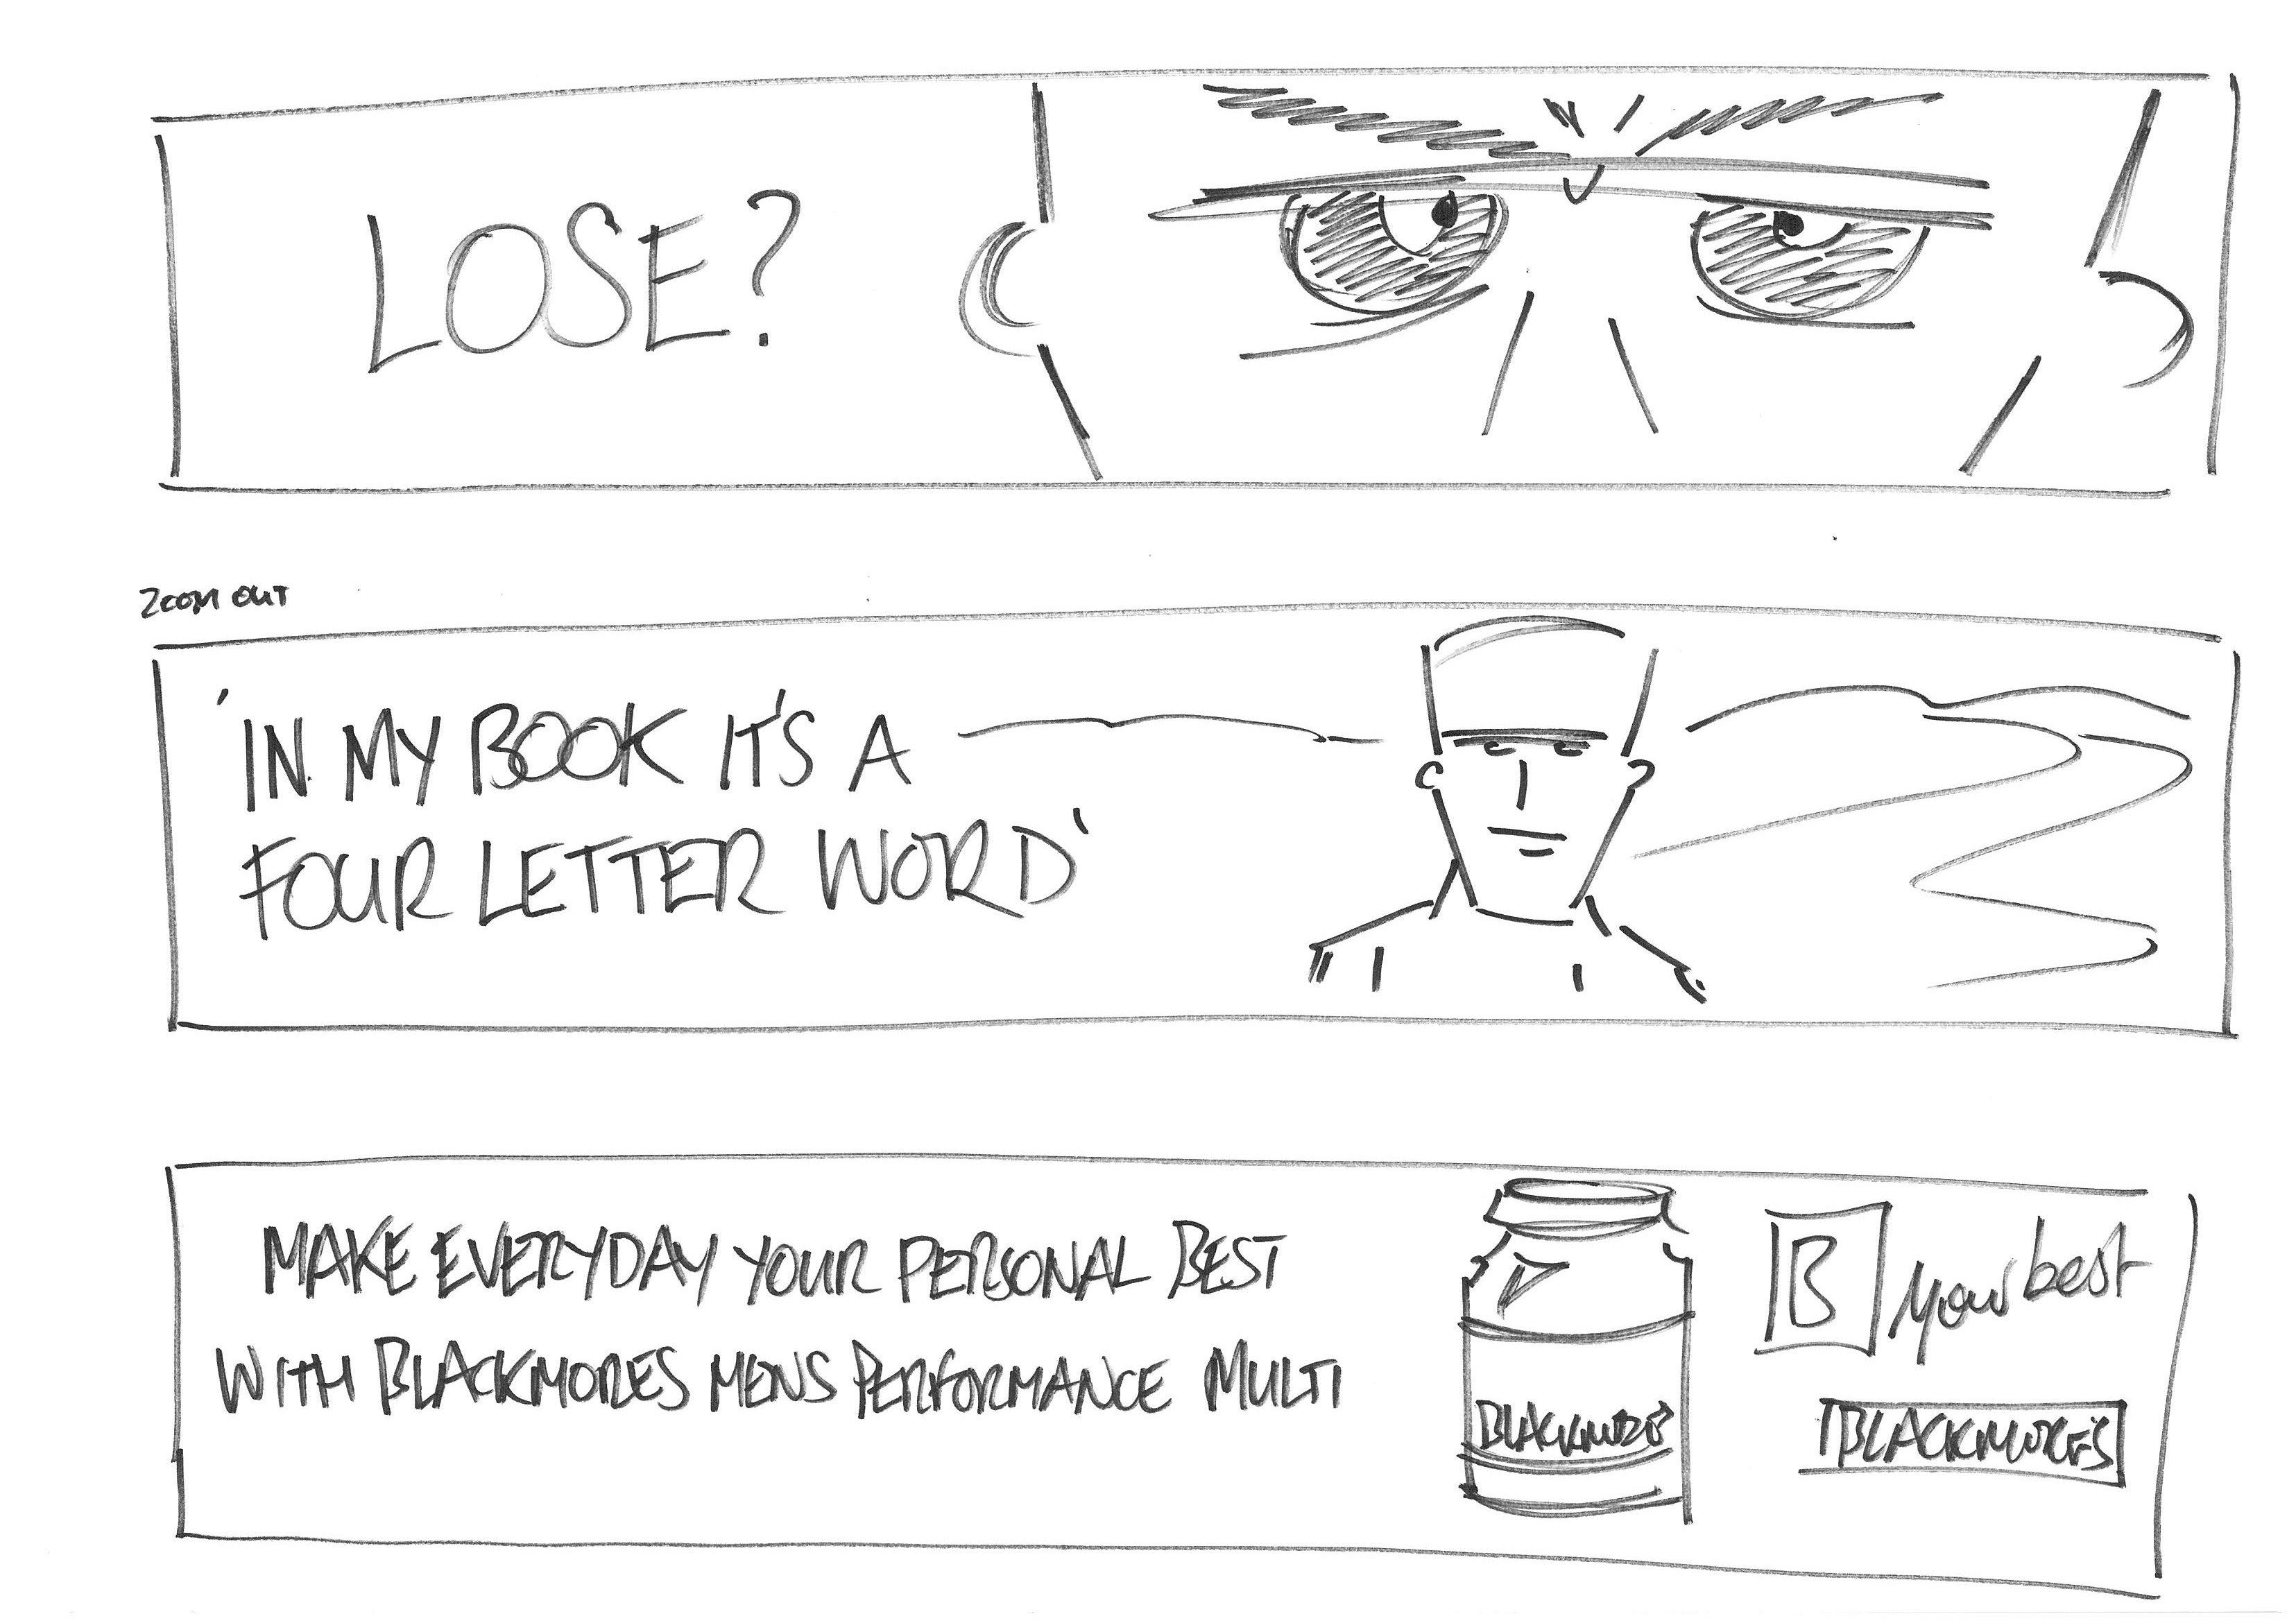 LOSE?
ZOOM OUT
'IN MY BOOK IT'S A
FOUR LETTER WORD'
MAKE EVERYDAY YOUR PERSONAL BEST
WITH BLACKMORES MENS PERFORMANCE MULTI
BLACKMORES
B your best
BLACKMORES